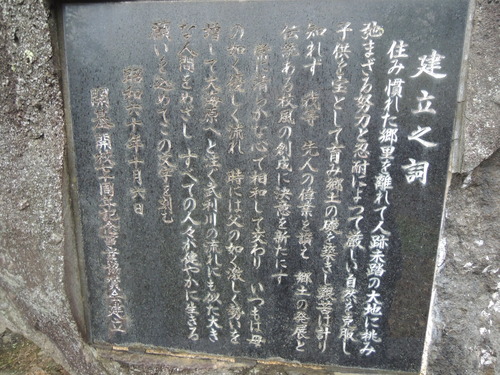 建立之詞
住み慣れた郷里を離れて人跡未踏の大地に挑み
弛まざる努力と忍耐によつて厳しい自然を克服し
子供を宝として育み郷土の礎を築きし興苦は計り
知れず 我等 先人の偉業を讃え 郷土の発展と
伝統ある校風の創成に決意を新たにす
清らかな心で相和して交わり いつもは母
の如く優しく流れ 時には父の如く激しく勢いを
増して大海原へと注ぐ 川の流れにも似た大き
な人間をめざし すべての人々が健やかに生きる
願いを込めてこの文字を刻む
昭和六十年十月六日
開校七十周年記念事業協賛会建立